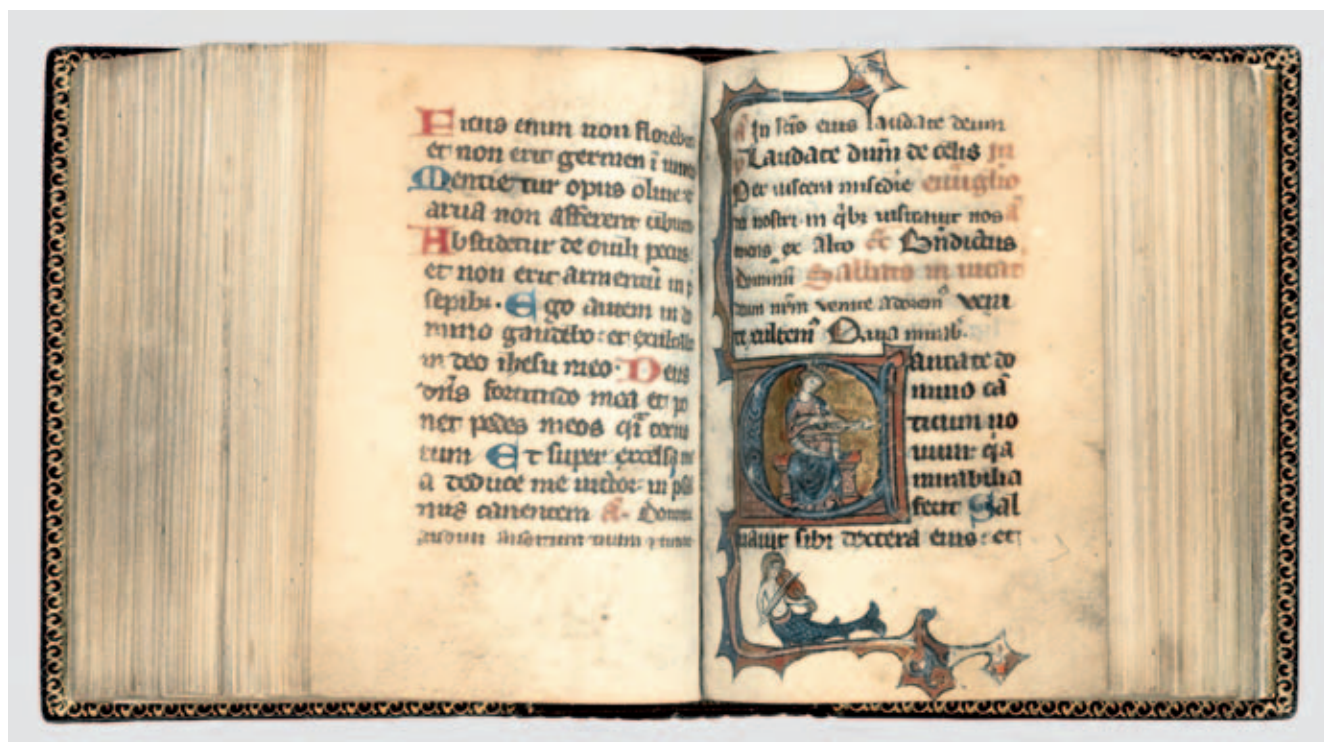 Ficus enim non floreb
et non erit germen ĩ uine
Mentietur opus oliue
arua non afferent cibum
Abscidetur de ouili pecus
et non erit armentũ in p
sepibꝰ. Ego autem in d
mino gaudebo: et exulta
in deo ihesu meo. Deus
dñs fortitudo mea et po
net pedes meos q̃ ceruo
rum Et super excelsa m
a deducet me uictor in psal
mis canentem a. Domine
audiui auditum tuum
In sc̃is eius laudate deum
Laudate dum̃ de celis
Per uiscera mis̃edie euãglio
nostri in q̃bꝫ uisitauit nos
ex alto Bñdictus
dominũ
dum nr̃m venite adorem̃ veni
te exultem̃ Quia mirab.
Cantate do
mino cã
ticum no
uum: q̃a
mirabilia
fecit Sal
uauit sibi dextera eius: et